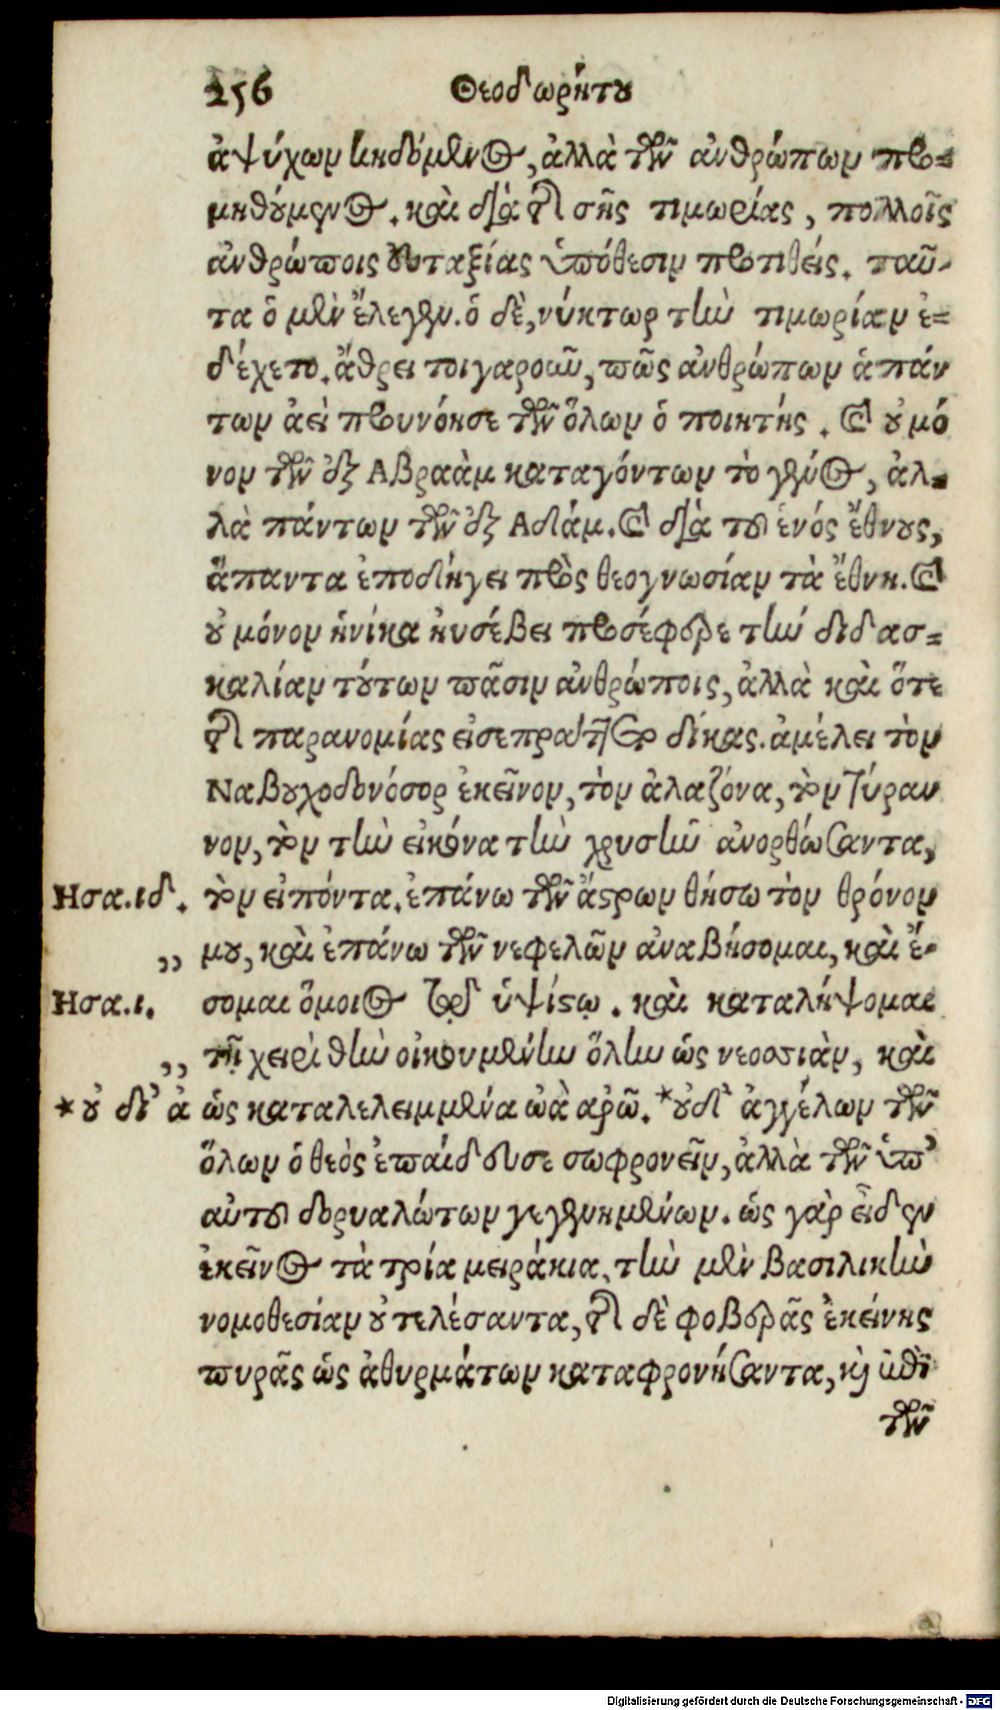 256 Θεοδωρήτου
ἀψύχων κηδόμενος, ἀλλὰ τῶν ἀνθρώπων προ-
μηθούμενος. καὶ διὰ τῆς σῆς τιμωρίας, πολλοῖς
ἀνθρώποις εὐταξίας ὑπόθεσιν προτιθείς. ταῦ-
τα ὁ μὲν ἔλεγεν. ὁ δὲ, νύκτωρ τὴν τιμωρίαν ἐ-
δέχετο. ἄθρει τοιγαροῦν, πῶς ἀνθρώπων ἁπάν
των ἀεὶ προυνόησε τῶν ὅλων ὁ ποιητής. καὶ οὐ μό
νον τῶν ἐξ Αβραὰμ καταγόντων τὸ γένος, ἀλ-
λὰ πάντων τῶν ἐξ Αδάμ. καὶ διὰ τοῦ ἑνός ἔθνους,
ἅπαντα ἐποδήγει πρὸς θεογνωσίαν τὰ ἔθνη. καὶ
οὐ μόνον ἡνίκα ηυσέβει προσέφερε τὴν διδασ-
καλίαν τούτων πᾶσιν ἀνθρώποις, ἀλλὰ καὶ ὅτε
τῆς παρανομίας εἰσεπράττετο δίκας. ἀμέλει τὸν
Ναβουχοδονόσορ ἐκεῖνον, τὸν ἀλαζόνα, τὸν τύραν
νον, τὸν τὴν εἰκόνα τὴν χρυσῆν ἀνορθώσαντα,
Ησα.ιδ. τὸν εἰπόντα. ἐπάνω τῶν ἄστρων θήσω τὸν θρόνον
,, μου, καὶ ἐπάνω τῶν νεφελῶν ἀναβήσομαι, καὶ ἔ-
Ησα.ι. σομαι ὅμοιος τῷ ὑψίστῳ. καὶ καταλήψομαι
,, τῇ χειρὶ τὴν οἰκουμένην ὅλην ὡς νεοσσιὰν, καὶ
*οὐ δι’ ἀ ὡς καταλελειμμένα ὠὰ ἀρῶ. *οὐδ’ ἀγγέλων τῶν
ὅλων ὁ θεὸς ἐπαίδευσε σωφρονεῖν, ἀλλὰ τῶν ὑπ’
αὐτοῦ δορυαλώτων γεγενημένων. ὡς γὰρ εἶδεν
ἐκεῖνος τὰ τρία μειράκια, τὴν μὲν βασιλικὴν
νομοθεσίαν οὐ τελέσαντα, τῆς δὲ φοβερᾶς ἐκείνης
πυρᾶς ὡς ἀθυρμάτων καταφρονήσαντα, καὶ ὑπὸ
τῶν
Digitalisierung gefördert durch die Deutsche Forschungsgemeinschaft - DFG